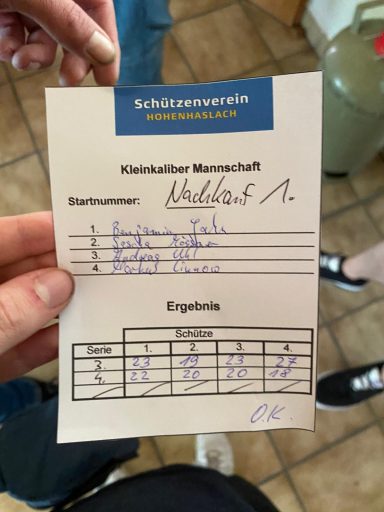 Schützenverein
HOHENHASLACH
Kleinkaliber Mannschaft
Startnummer: Nachkauf 1.
1. Benjamin
2.
3. Andreas Uhl
4. Markus
Ergebnis
Schütze
Serie 1. 2. 3. 4.
3. 23 19 23 27
4. 22 20 20 18
O.K.